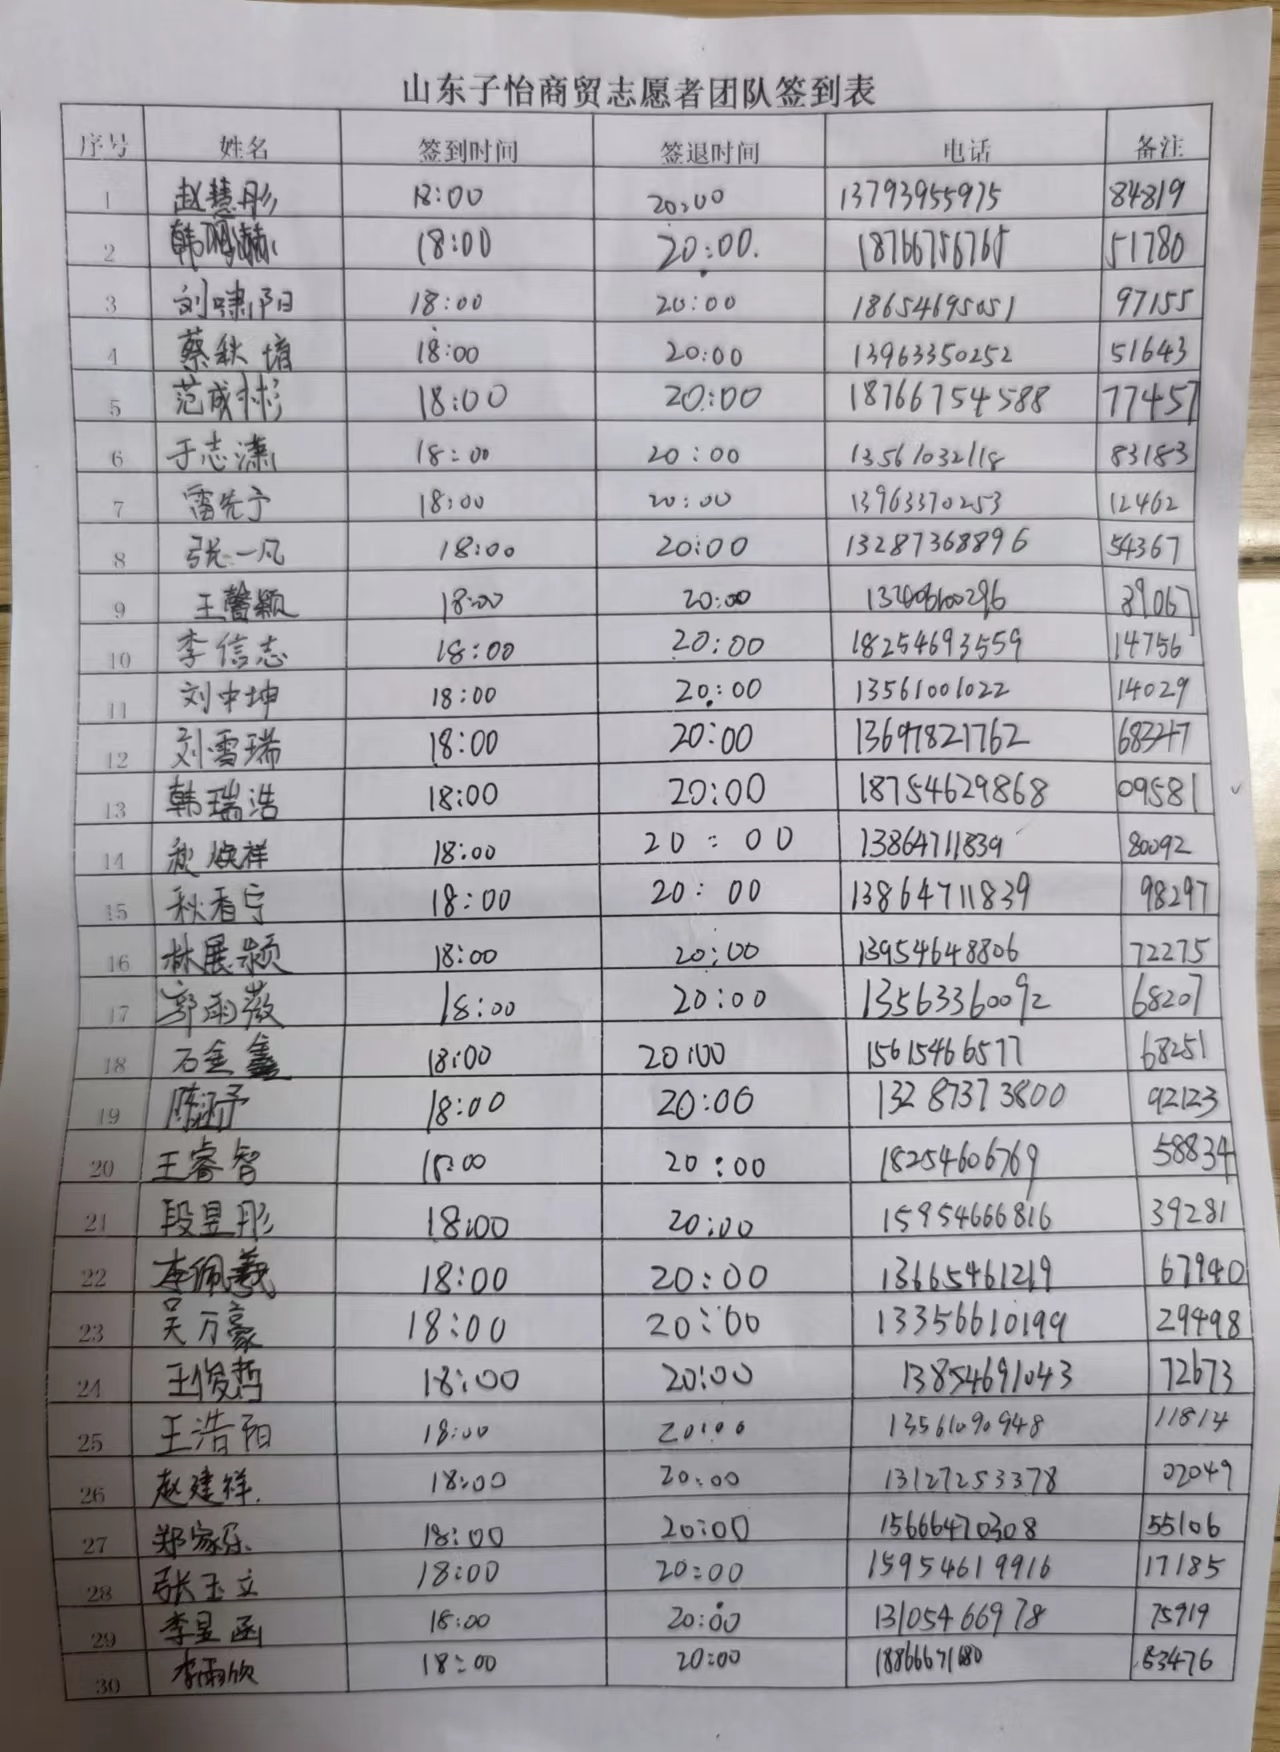 山东子怡商贸志愿者团队签到表
序号 姓名 签到时间 签退时间 电话 备注
1 赵慧彤 18:00 20:00 13793955975 84819
2 韩明赫 18:00 20:00. 18766756765 51780
3 刘啸阳 18:00 20:00 18654695051 97155
4 蔡秋堉 18:00 20:00 13963350252 51643
5 范成彬 18:00 20:00 18766754588 77457
6 于志潇 18:00 20:00 13561032118 83183
7 雷先宁 18:00 20:00 13963370253 12462
8 张一凡 18:00 20:00 13287368896 54367
9 王馨颖 18:00 20:00 39067
10 李信志 18:00 20:00 18254693559 14756
11 刘中坤 18:00 20:00 13561001022 14029
12 刘雪瑞 18:00 20:00 13697821762 68347
13 韩瑞浩 18:00 20:00 18754629868 09581
14 秋焕祥 18:00 20:00 13864711839 80092
15 秋香宁 18:00 20:00 13864711839 98297
16 林展颍 18:00 20:00 13954648806 72275
17 郭雨薇 18:00 20:00 13563360092 68207
18 石金鑫 18:00 20:00 15615466577 68251
19 陈涵予 18:00 20:00 13287373800 92123
20 王睿智 18:00 20:00 18254606769 58834
21 段昱彤 18:00 20:00 15954666816 39281
22 李佩羲 18:00 20:00 13665461219 67940
23 吴万豪 18:00 20:00 13356610199 29498
24 王俊哲 18:00 20:00 13854691043 72673
25 王浩阳 18:00 20:00 13561090948 11814
26 赵建祥. 18:00 20:00 13127253378 02049
27 郑家乐 18:00 20:00 15666470308 55106
28 张玉立 18:00 20:00 15954619916 17185
29 李昱函 18:00 20:00 13105466978 75919
30 李雨欣 18:00 20:00 63476